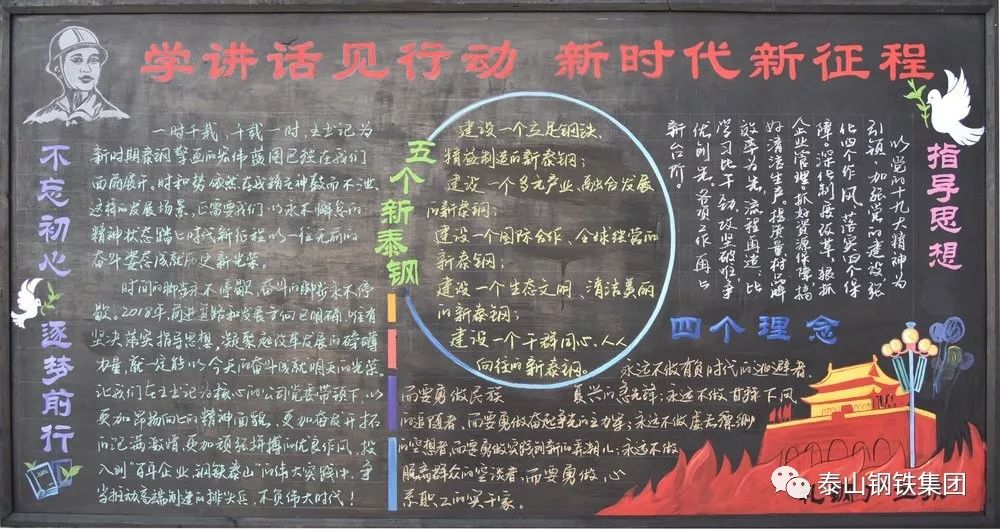 学讲话见行动 新时代新征程
不忘初心 逐梦前行
一时千载、千载一时,王书记为
新时期泰钢擘画的宏伟蓝图已经在我们
面前展开。时和势依然在我
这样的发展场景,正需要我们以永不懈怠的
精神状态踏上时代新征程以一往无前的
奋斗姿态成就历史新光荣。
时间的脚步永不停歇,奋斗的脚步永不停
歇。2018年,前进道路和发展方向已明确,唯有
坚决落实指导思想,凝聚起改革发展的磅礴
力量,就一定能以今天的奋斗成就明天的光荣。
让我们在王书记为核心的公司党委带领下,以
更加昂扬向上的精神面貌、更加奋发开拓
的饱满激情,更加顽强拼搏的优良作风,投
入到“百年企业,钢铁泰山”的伟大实践中,争
当推动高端制造的排头兵,不负伟大时代!
五个新泰钢
建设一个立足钢铁、
精益制造的新泰钢;
建设一个多元产业、融合发展
的新泰钢;
建设一个国际合作、全球经营的
新泰钢;
建设一个生态文明、清洁美丽
的新泰钢;
建设一个干群同心、人人
向往的新泰钢。
指导思想
以党的十九大精神为
引领,加强党的建设,强
化四个作风,落实四个保
障。深化制度改革,狠抓
企业管理。抓好资源保障,搞
好清洁生产。提质量树品牌
效率为先,流程再造,比
学习比干劲,攻坚破难,争
优创先,各项工作再上
新台阶。
四个理念
永远不做有负时代的逃避者,
而要勇做民族 复兴的
;永远不做甘拜下风
的追随者,而要勇做奋起争先的主力军;永远不做虚无缥缈
的空想者,而要勇做实践创新的
;永远不做
脱离群众的空谈者,而要勇做心
系职工的实干家。
泰山钢铁集团